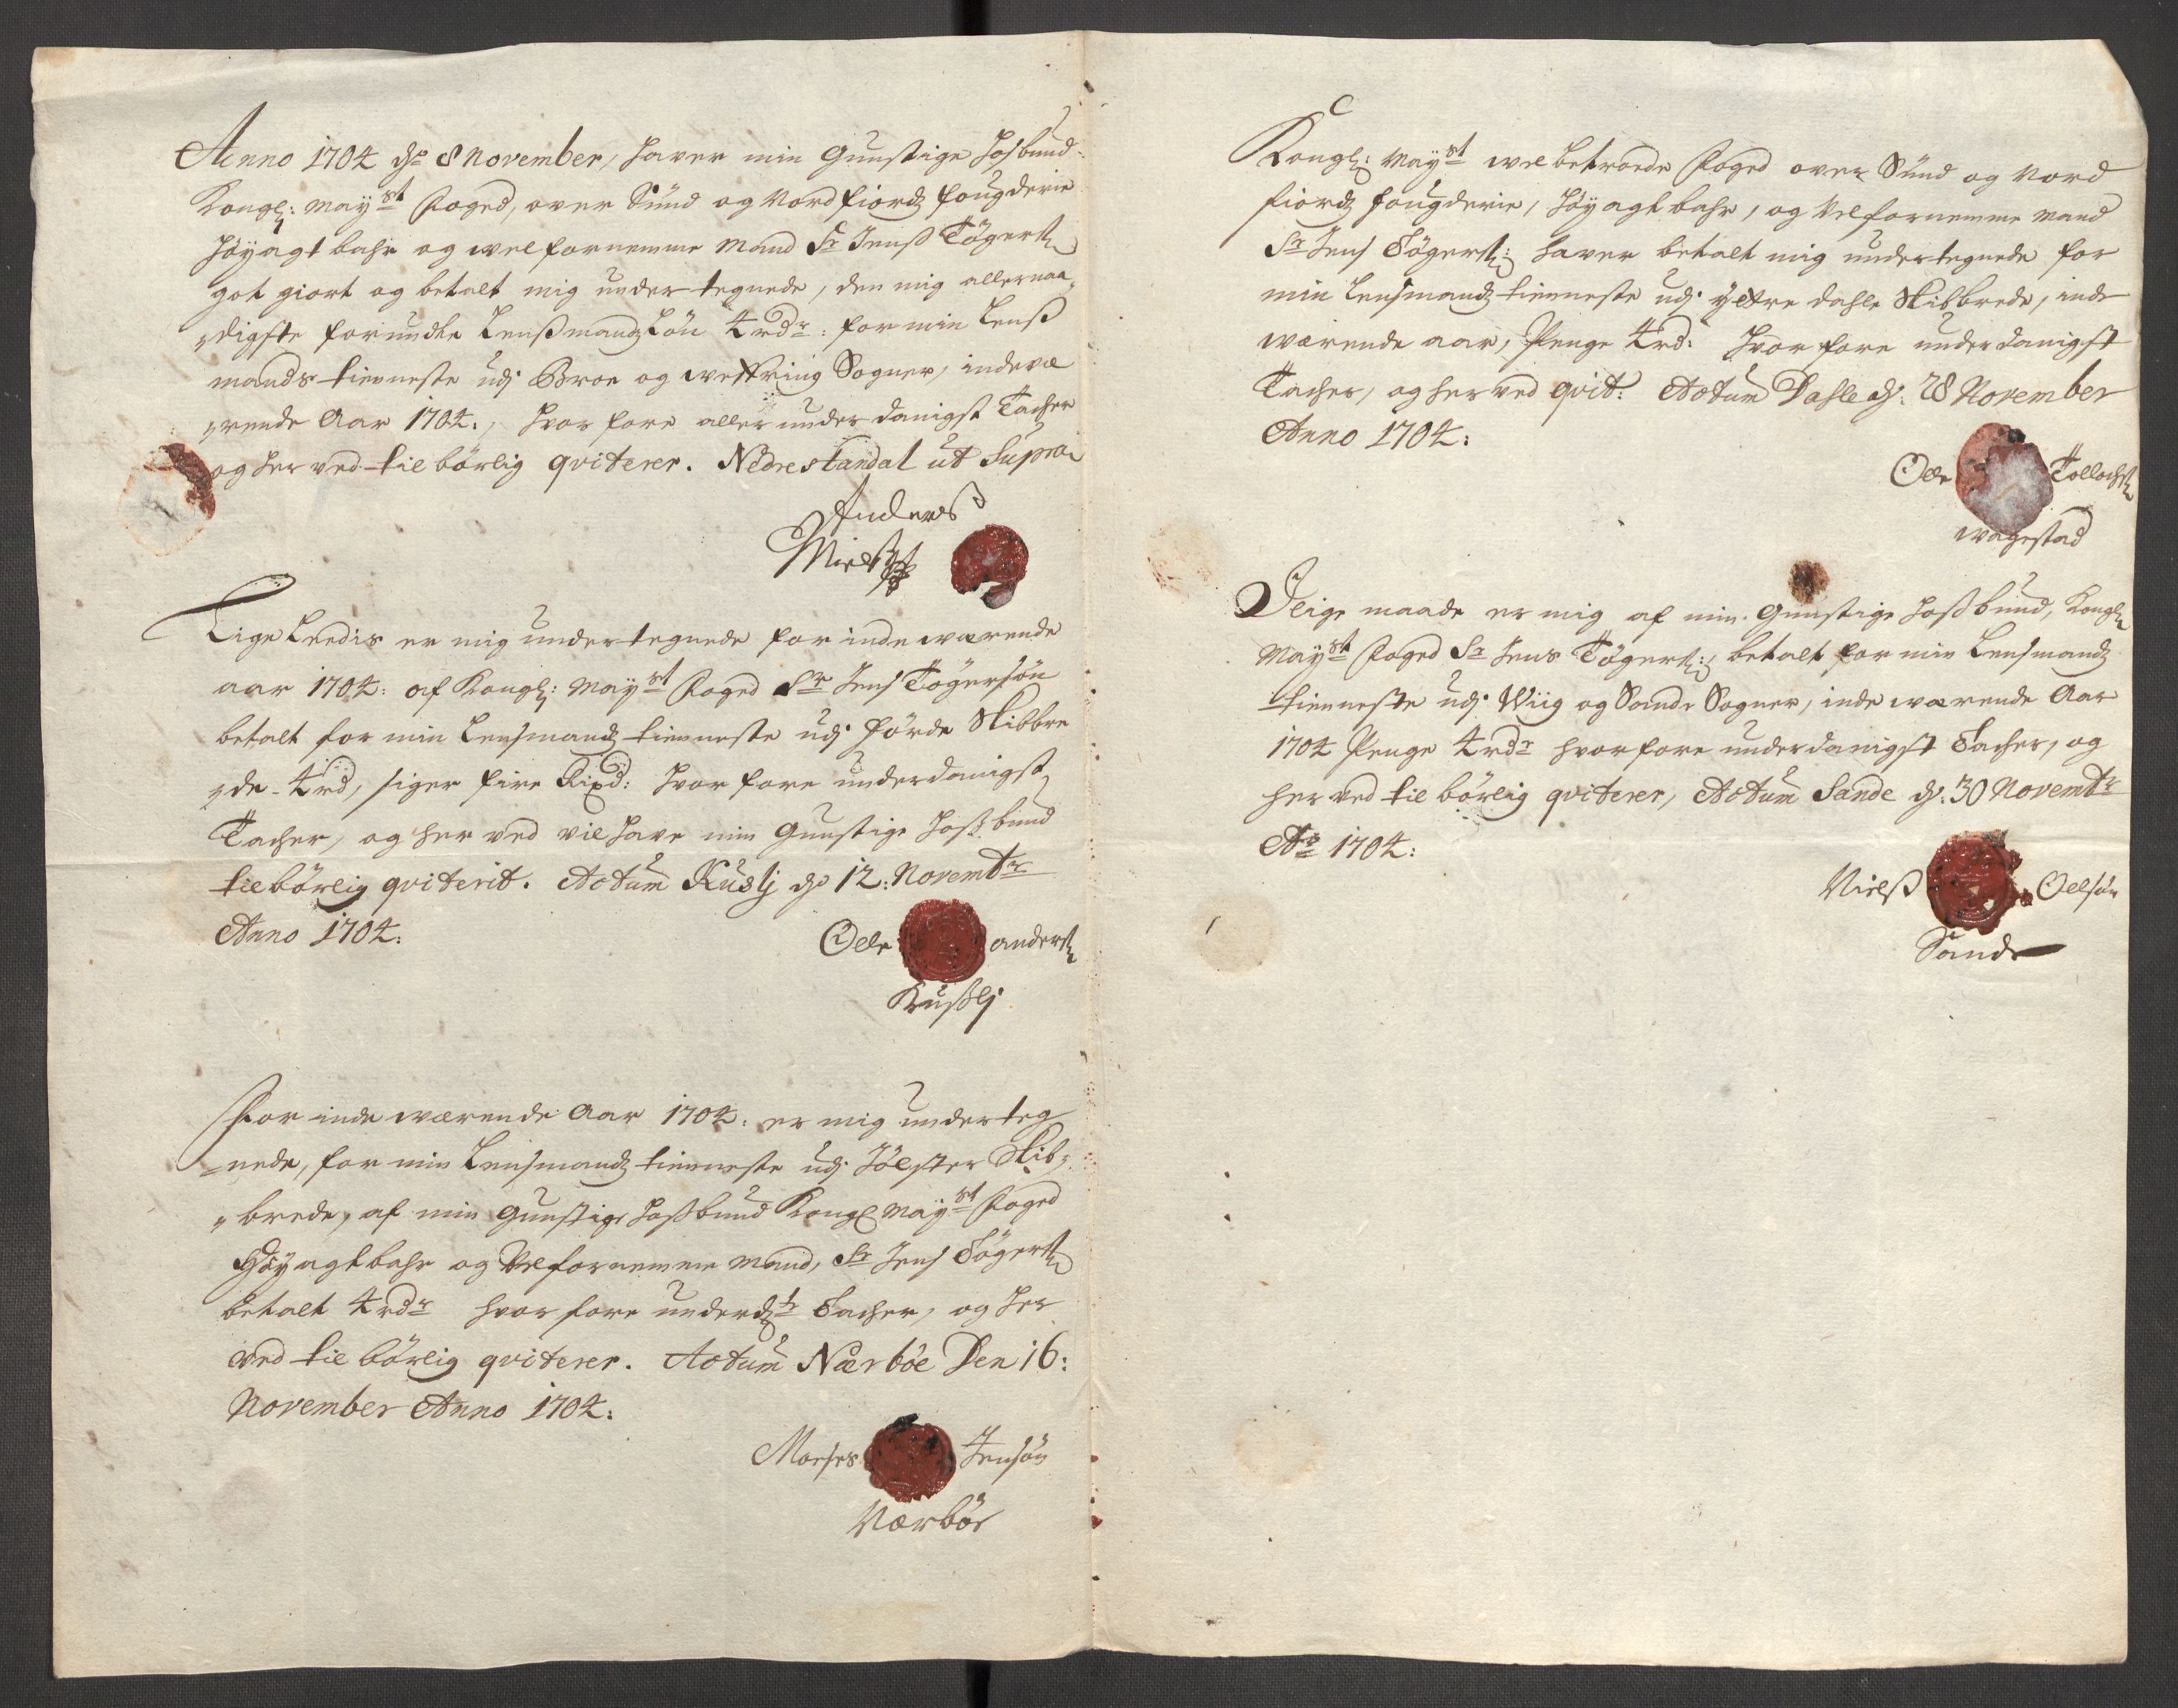 Anno 1704 dn 8 November, haver min Gunstige Hosbund
Kongl: Mayst Foged, over Sund og Nordfiordz fougderie
Høyagtbahr og welfornemme Mand Sr Jenss Tøgers:
got giort og betalt mig undertegnede, den mig allernaa
digste forundte Lenssmandz Løn 4 rdr: for min Lenss
mands tienneste udj Broe og Wefring Sogner, indevæ
rende Aar 1704., hvor fore aller underdanigst Tacher
og her ved tilbørlig qviterer. Nedrestandal ut Supra
Anders
Nielss
Lige Leedis er mig undertegnede for indeværende
aar 1704: af Kongl: Mayst Foged Sr Jens Tøgersøn
betalt for min Lensmandz tienneste udj Førde Skibbre
de 4 rd, siger fire Rixd: hvor fore underdanigst
Tacher, og her ved vil have min Gunstige Hossbund
tilbørlig qviterit. Actum Kuslj dn 12: Novembr
Anno 1704:
Olle anders:
Kusslj
For indeværende Aar 1704: er mig underteg
nede, for min Lensmandz tienneste udj Jølster Skib
brede, af min Gunstige Hossbund Kongl Mayst Foged
Høyagtbahr og Velfornemme Mand, Sr Jens Tøgers:
betalt 4 rdr hvor fore underdst Tacher, og her
ved tilbørlig qviterer. Actum Nærbøe Den 16:
November Anno 1704:
Moeses Jensøn
Nærbøe
Kongl: Mayst wel betroede Foged over Sund og Nord
fiordz fougderie, Høyagtbahr, og Velfornemme Mand
Sr Jens Tøgers: haver betalt mig undertegnede for
min Lensmandz tienneste udj yttre Dahle Skibbrede, inde
wærende aar, Penge 4 rd: hvor fore underdanigst
Tacher, og her ved qvit: Actum Dahle dn: 28 November
Anno 1704:
Olle Tollachs:
Wagestad
I lige maade er mig af min Gunstige Hossbund, Kongl
Mayst Foged Sr Jens Tøgers:, betalt for min Lensmandz
tienneste udj Wiig og Sande Sogner, indeværende Aar
1704 Penge 4 rdr hvorfore underdanigst Tacher, og
her ved tilbørlig qviterer, Actum Sande dn: 30 Novembr
Ao 1704:
Nielss Ollsøn
Sande